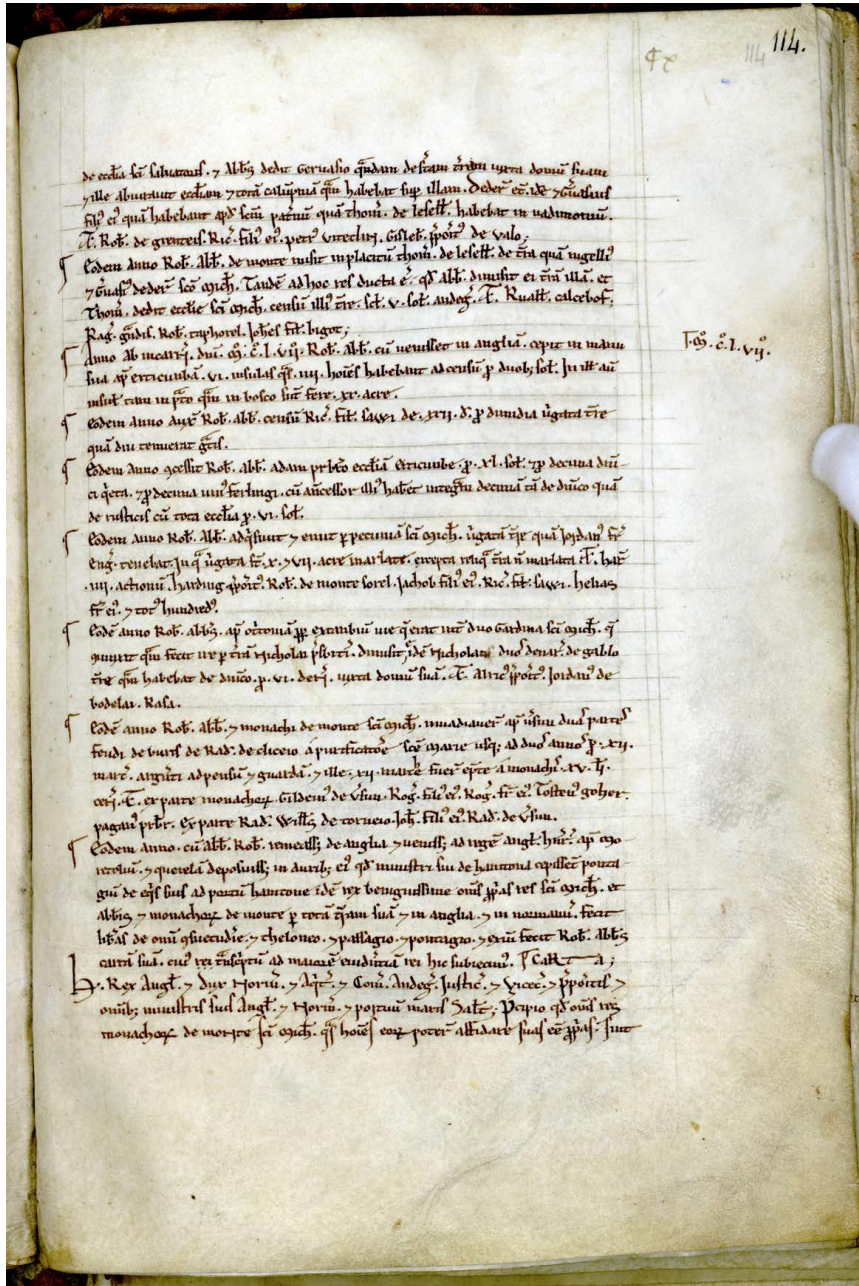 114.
114
de eccłia sci salvatoris. ⁊ Abb̃s dedit Geruasio q̃ndam desertam tr̃am iuxta domũ suam
⁊ ille abiurauit eccłiam ⁊ totã calũpniã q̃m habebat sup illam. Dedert̃ et̃ idẽ ⁊ G̃uasius
filiꝰ eiꝰ quã habebant apd̃ scm̃ patnũ quã thom̃. de lesełł. habebat in uadimoniũ.
T̃. Rob̃. de Ric̃. filiꝰ eiꝰ. petrꝰ Gisleb̃. p̃positꝰ de valo;
Eodem anno Rob̃. Abb̃. de monte misit in placitũ thom̃. de lesełł. de tr̃a quã nigellꝰ
⁊ G̃uasiꝰ dedert̃ sco mich̃. Tandẽ ad hoc res ducta ẽ. qd̃ abb̃. dimisit ei tr̃a illã. et
Thom̃. dedit eccłie sci mich̃. censũ illiꝰ tr̃e. scł. v. soł. andeg̃. T̃. Ruałł. calcebof;
Rag̃. g̃ndis. Rob̃. taphorel. Joh̃es fił. bigot;
Anno ab incarñ. dni. m̊. c̊. l. vıı̊. Rob̃. abb̃. cũ uenisset in angliã. cepit in manu
sua ap̃ ertıcũbã. vı. insulas q̃s. ıııı. hoıẽs habebant ad censũ p duob; soł. In ił añ
insuł tam in p̃to q̃m in bosco sũt fere. xv. acre.
Eodem anno auxꝰ Rob̃. abb̃. censũ Ric̃. fił. sawi de. xxıı. d̃. p dimidia ũgata tr̃e
quã diu tenuerat g̃tis.
Eodem anno ꝯcessit Rob̃. abb̃. adam prb̃ro eccłiã Erticũbe. p. xl. soł. ⁊ p decima dñi-
ci ⁊ p decima uniꝰ ferlingi. cũ añcessor illiꝰ hab̃et integ̃m decimã tã de dñico quã
de rusticis cũ tota eccłia p. vı. soł.
Eodem anno Rob̃. Abb̃. adq̃siuit ⁊ emit p pecuniã sci mich̃. ũgatã tr̃e quã Jordanꝰ fr̃
eng̃. tenebat. In q̃ ũgata st̃. x. ⁊ vıı. acre marlate. excepta reliq̃ tr̃a ñ marlata T̃. haꝰ
ıııı. actionũ. harding p̃positꝰ. Rob̃. de monte sorel. Jachob filiꝰ eiꝰ. Ric̃. fił. sawi. helias
fr̃ eiꝰ. ⁊ totꝰ hundredꝰ.
Eodẽ anno Rob̃. abb̃s. ap̃ ottoniã pp̃ excambiũ uie q̃ erat int̃ duo Gardina sci mich̃. q̃
ꝯiunxit q̃m fecit ire p tr̃ã Nicholai p̃sbıtı. dimisit idẽ Nicholao duos denar̃. de gablo
tr̃e q̃m habebat de dñico. p. vı. deñ. iuxta domũ suã. T̃. Alricꝰ p̃positꝰ. Jordanꝰ de
bodelai. Rasa.
Eodẽ anno Rob̃. Abb̃. ⁊ monachi de monte sci mich̃. inuadiauer̃ ap̃ ũsun duas partes
feudi de buris de Rad̃. de cliceio a purificatõe sce marie usq; ad duos annos p. xıı.
marc̃. argñti ad pensũ ⁊ guardã. ⁊ ille. xıı. marce fuer̃ a monachꝰ. xv. łi.
ceñ. T̃. ex parte monachoꝝ. Gildeinꝰ de ũsun. Rog̃. filiꝰ eiꝰ. Rog̃. fr̃ eiꝰ. Tosteinꝰ goher.
paganꝰ prb̃r. Ex parte Rad̃. Willꝰs de torneio Joh̃. filiꝰ eiꝰ. Rad̃. de ũsun.
Eodem anno. cũ abb̃. Rob̃. remeass; de anglia ⁊ ueniss; ad regẽ angł. hñr̃. ap̃ mo
retoiũ. ⁊ querelã deposuiss; in aurib; eiꝰ qd̃ ministri sui de hantona cepissent ponta
giũ de eq̃s suis ad portũ hamtone idẽ rex benignissime om̃s pp̃as res sci mich̃. et
abb̃is ⁊ monachoꝝ de monte p totã tr̃am suã ⁊ in anglia. ⁊ in normañ. fecit
lib̃as de omi ꝯsuetudie. ⁊ theloneo. ⁊ passagio. ⁊ pontagio. ⁊ exiñ fecit Rob̃. Abb̃s
cartã suã. cuiꝰ rei t̃scptũ ad maiorẽ euidñtiã rei hic subiecimꝰ. CARTA;
H. Rex Angł. ⁊ Dux Norm̃. ⁊ Aq̃t. ⁊ Com̃. Andeg̃. Justic̃. ⁊ Vicec̃. ⁊ p̃positis ⁊
omib; ministris suis Angł. ⁊ Norm̃. ⁊ portuũ maris Sałt; Pcipio qd̃ om̃s res
monachoꝝ de monte sci mich̃. q̃s hoıẽs eoꝝ poter̃ affidare suas eẽ pp̃as. sint
m̊. c̊. l. vıı̊.